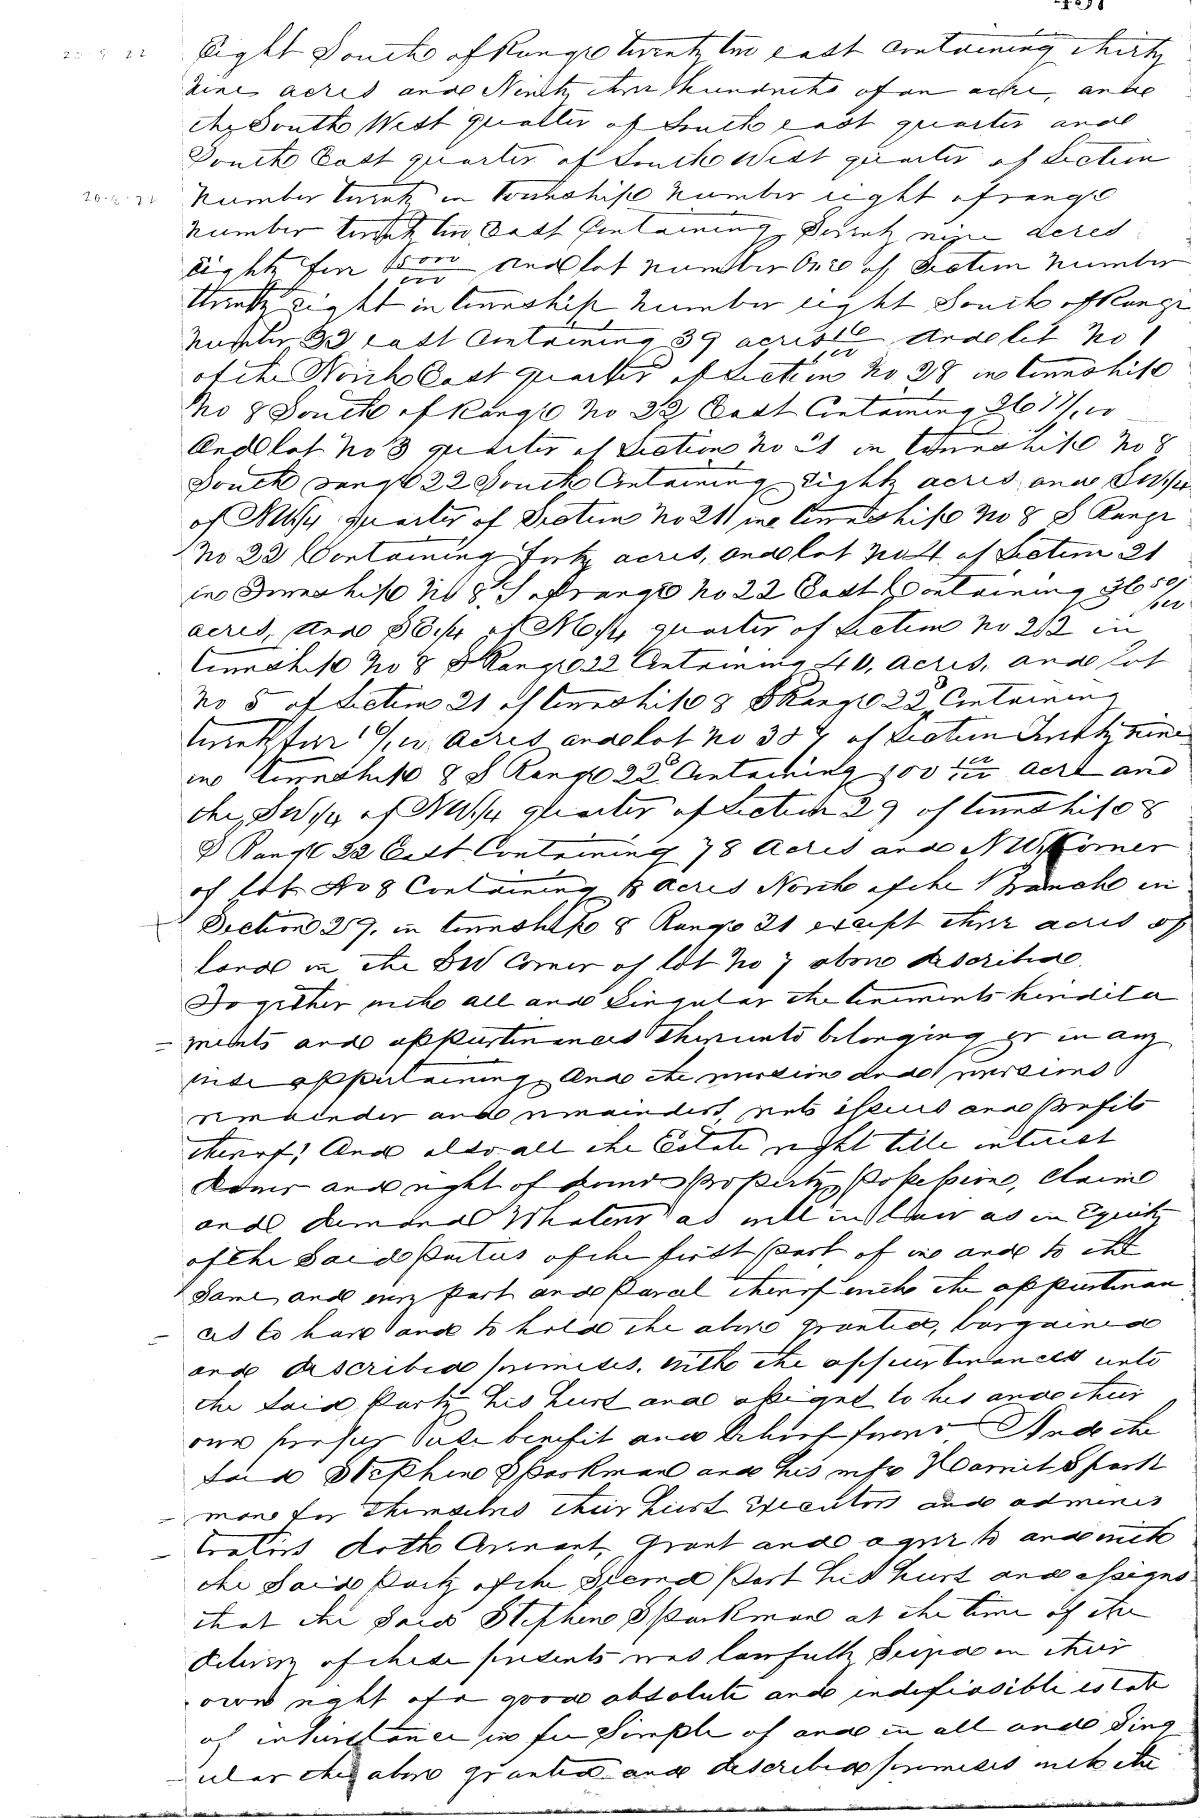 20-8-22 Eight South of Range twenty two east containing thirty
nine acres and Ninety three hundreths of an acre, and
the South West quarter of South east quarter and
South East quarter of South West quarter of Section
20-8-22 Number twenty in township number eight of range
number twenty two East Containing Seventy nine acres
Eighty five and lot number One of Section number
twenty eight in township number eight South of Range
number 22 east Containing 39 acres 16/100 And lot No 1
of the North East quarter of Section No 28 in township
No 8 South of Range No 22 East Containing 26 77/100
And lot No 3 quarter of Section No 21 in township No 8
South range 22 South Containing Eighty acres and SW 1/4
of NW 1/4 quarter of Section No 21 in township No 8 S Range
No 22 Containing forty acres, and lot No 4 of Section 21
in Township No 8 S of range No 22 East Containing 36 50/100
acres, and SE 1/4 of NE 1/4 quarter of Section No 202 in
township No 8 S Range 22 Containing 40, acres, and lot
No 5 of Section 21 of township 8 S Range 22 Containing
twenty five acres and lot No 3 & 7 of Section Twenty nine
in township 8 S Range 22 Containing 100 acre and
the SW 1/4 of NW 1/4 quarter of Section 29 of township 8
S Range 22 East Containing 78 acres and NW Corner
of lot No 8 Containing 8 acres North of the Branch in
Section 29, in township 8 Range 21 except three acres of
land in the SW Corner of lot No 7 above described.
Together with all and Singular the tenements hendita
= ments and appurtinances thereunto belonging or in any
wise appertaining And the reversion and reversions
remainder and remainders, rents issues and profits
thereof; And also all the Estate right title interest
dower and right of dower property, possession, Claim
and demand Whatever as well in law as in Equity
of the Said parties of the first part, of in and to the
Same, and every part and parcel thereof with the appurtinan
- ces to have and to hold the above granted, bargained
and described premises, with the appurtinances unto
the said party his heirs and assigns to his and their
own proper use benefit and behoof forever. And the
said Stephen Sparkman and his wife Harriet Spark
- man for themselves their heirs Executors and adminis
- trators doth Covenant, Grant and agree to and with
the Said party of the Second part his heirs and assigns
that the Said Stephen Sparkman at the time of the
delivery of these presents was lawfully Seized in their
own right of a good absolute and indefeasible estate
of inheritance in fee Simple of and in all and Sing
- ular the above granted and described premises with the